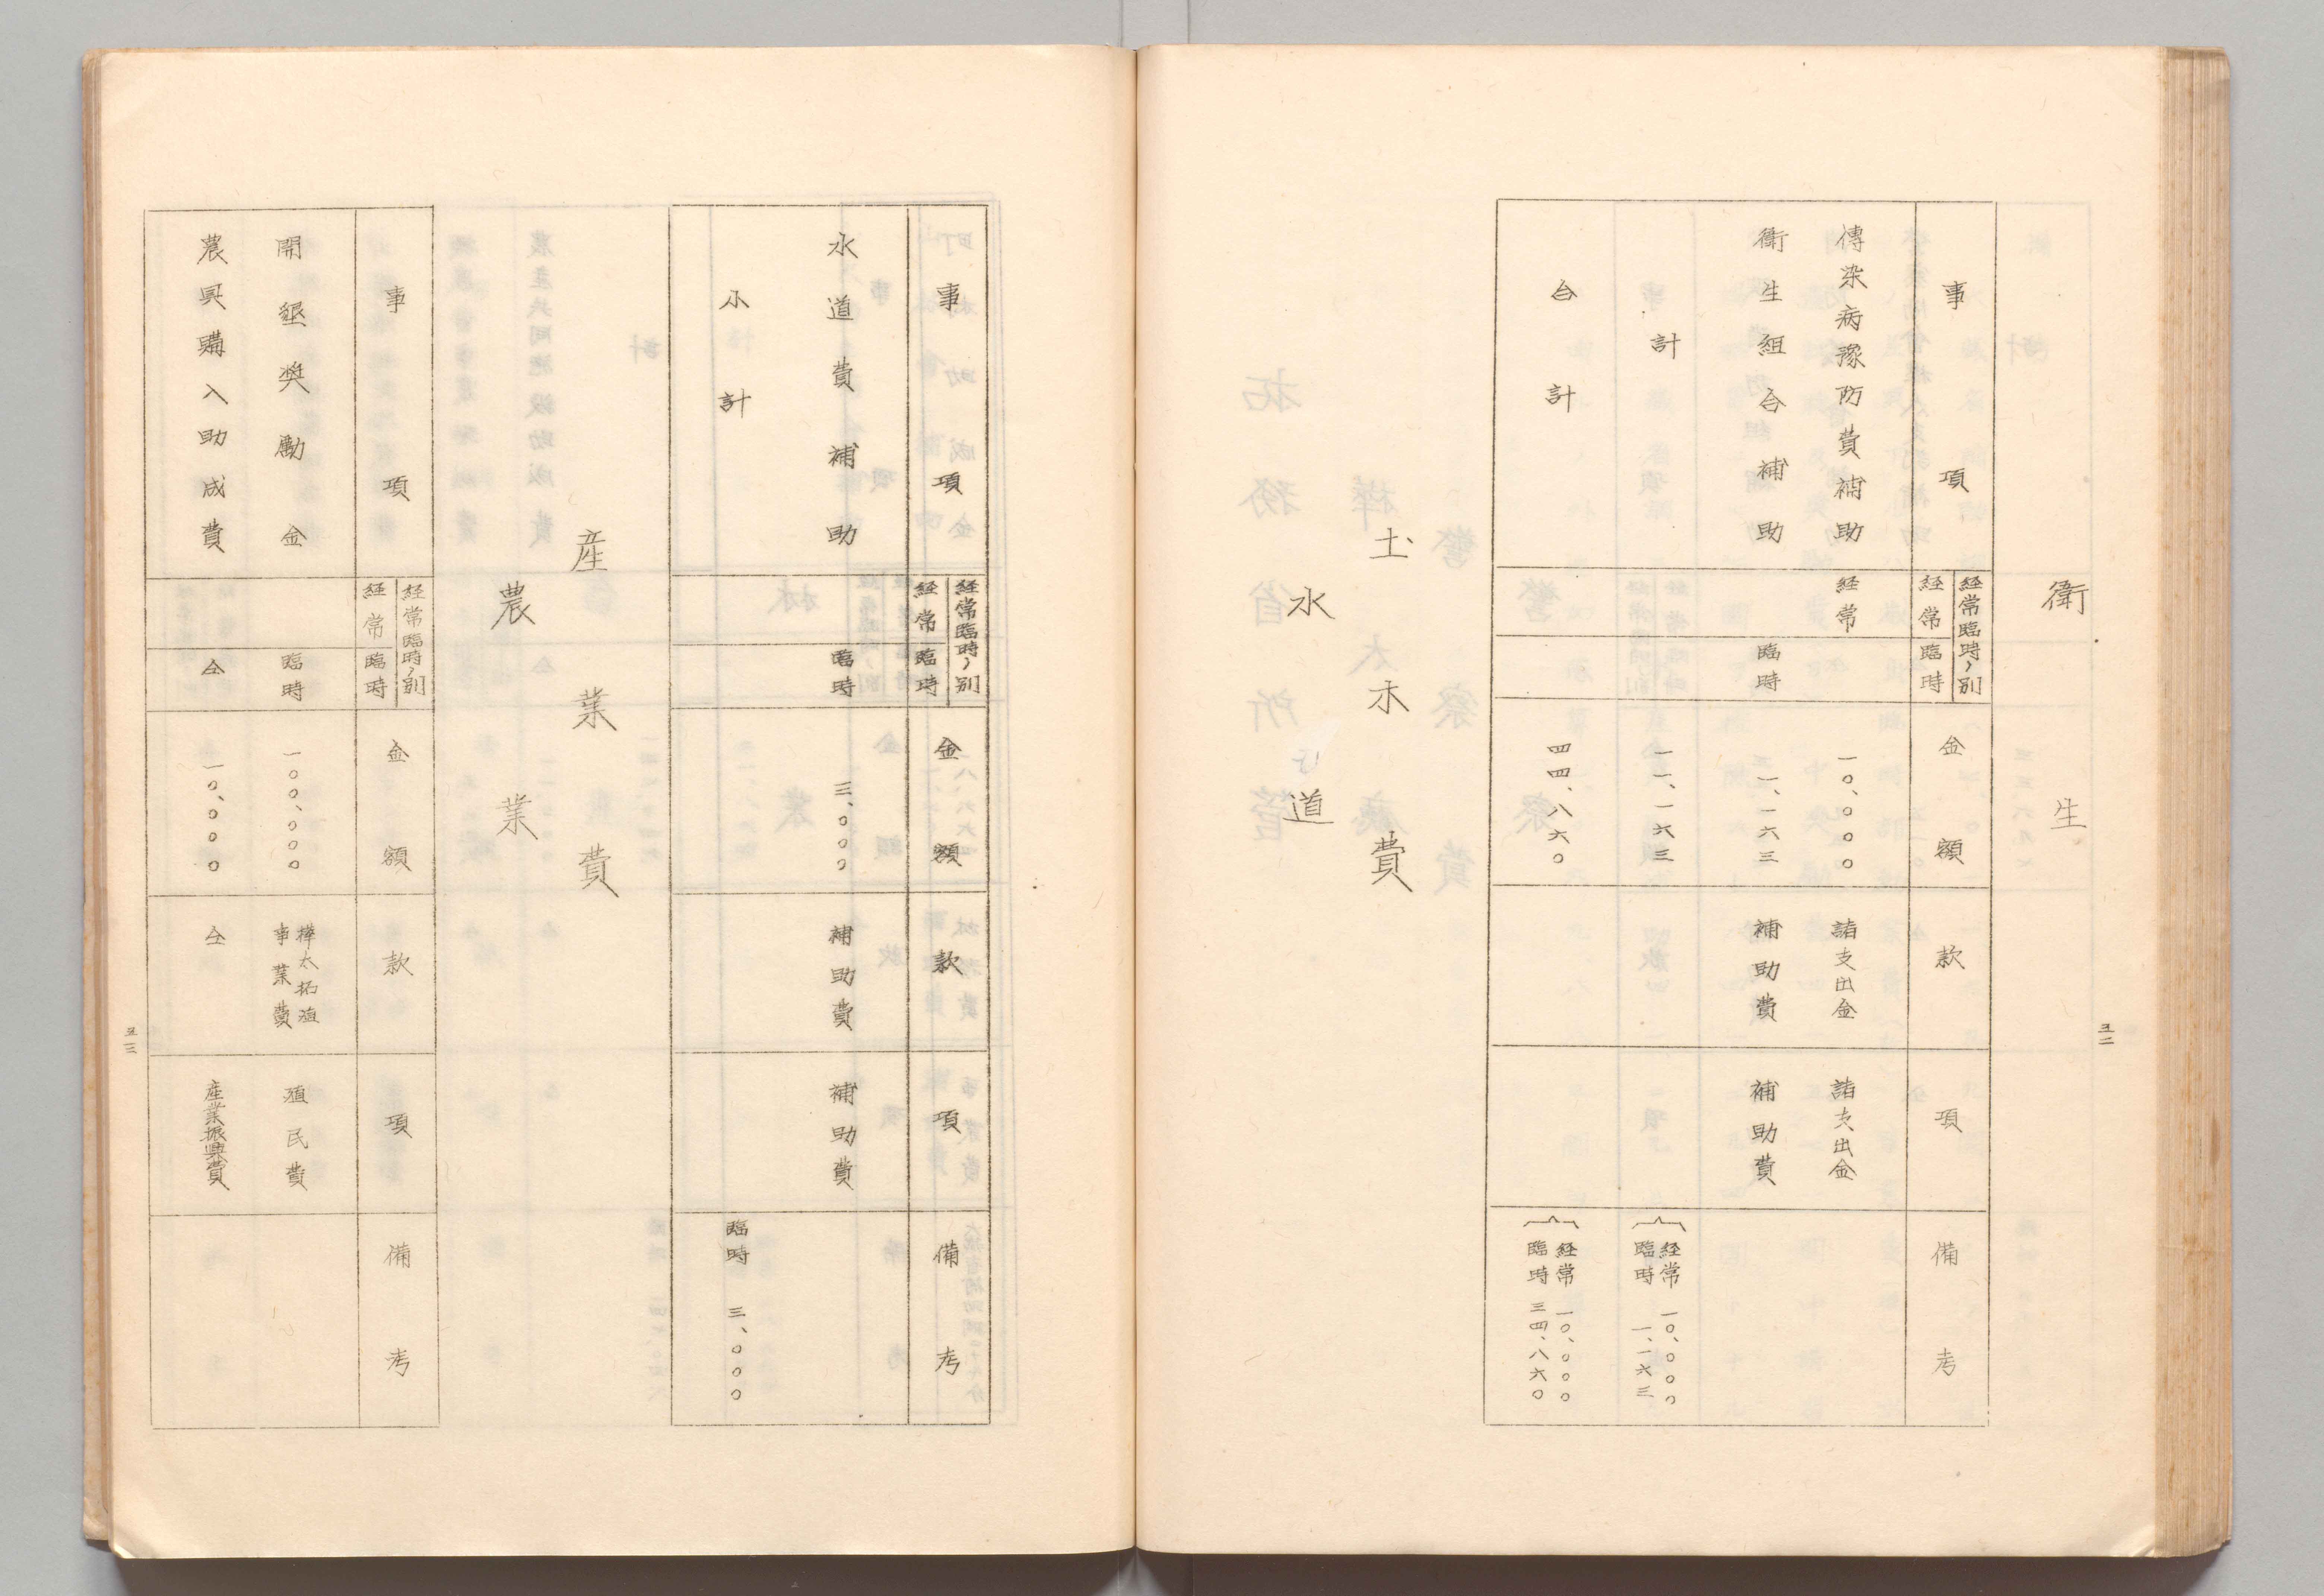 衛生
事項
経常臨時ノ別
経常
臨時
金額
款
項
備考
傳染病豫防費補助
経常
一〇、〇〇〇
諸支出金
諸支出金
衛生組合補助
臨時
一、一六三
補助費
補助費
計
一一、一六三
経常 一〇、〇〇〇
臨時 一、一六三
合計
四四、八六〇
経常 一〇、〇〇〇
臨時 三四、八六〇
土木費
水道
五二
事項
経常臨時ノ別
経常
臨時
金額
款
項
備考
水道費補助
臨時
三、〇〇〇
補助費
補助費
小計
臨時 三、〇〇〇
産業費
農業
事項
経常臨時ノ別
経常
臨時
金額
款
項
備考
開墾奨勵金
臨時
一〇〇、〇〇〇
樺太拓殖
事業費
殖民費
農具購入助成費
仝
一〇、〇〇〇
仝
産業振興費
五三